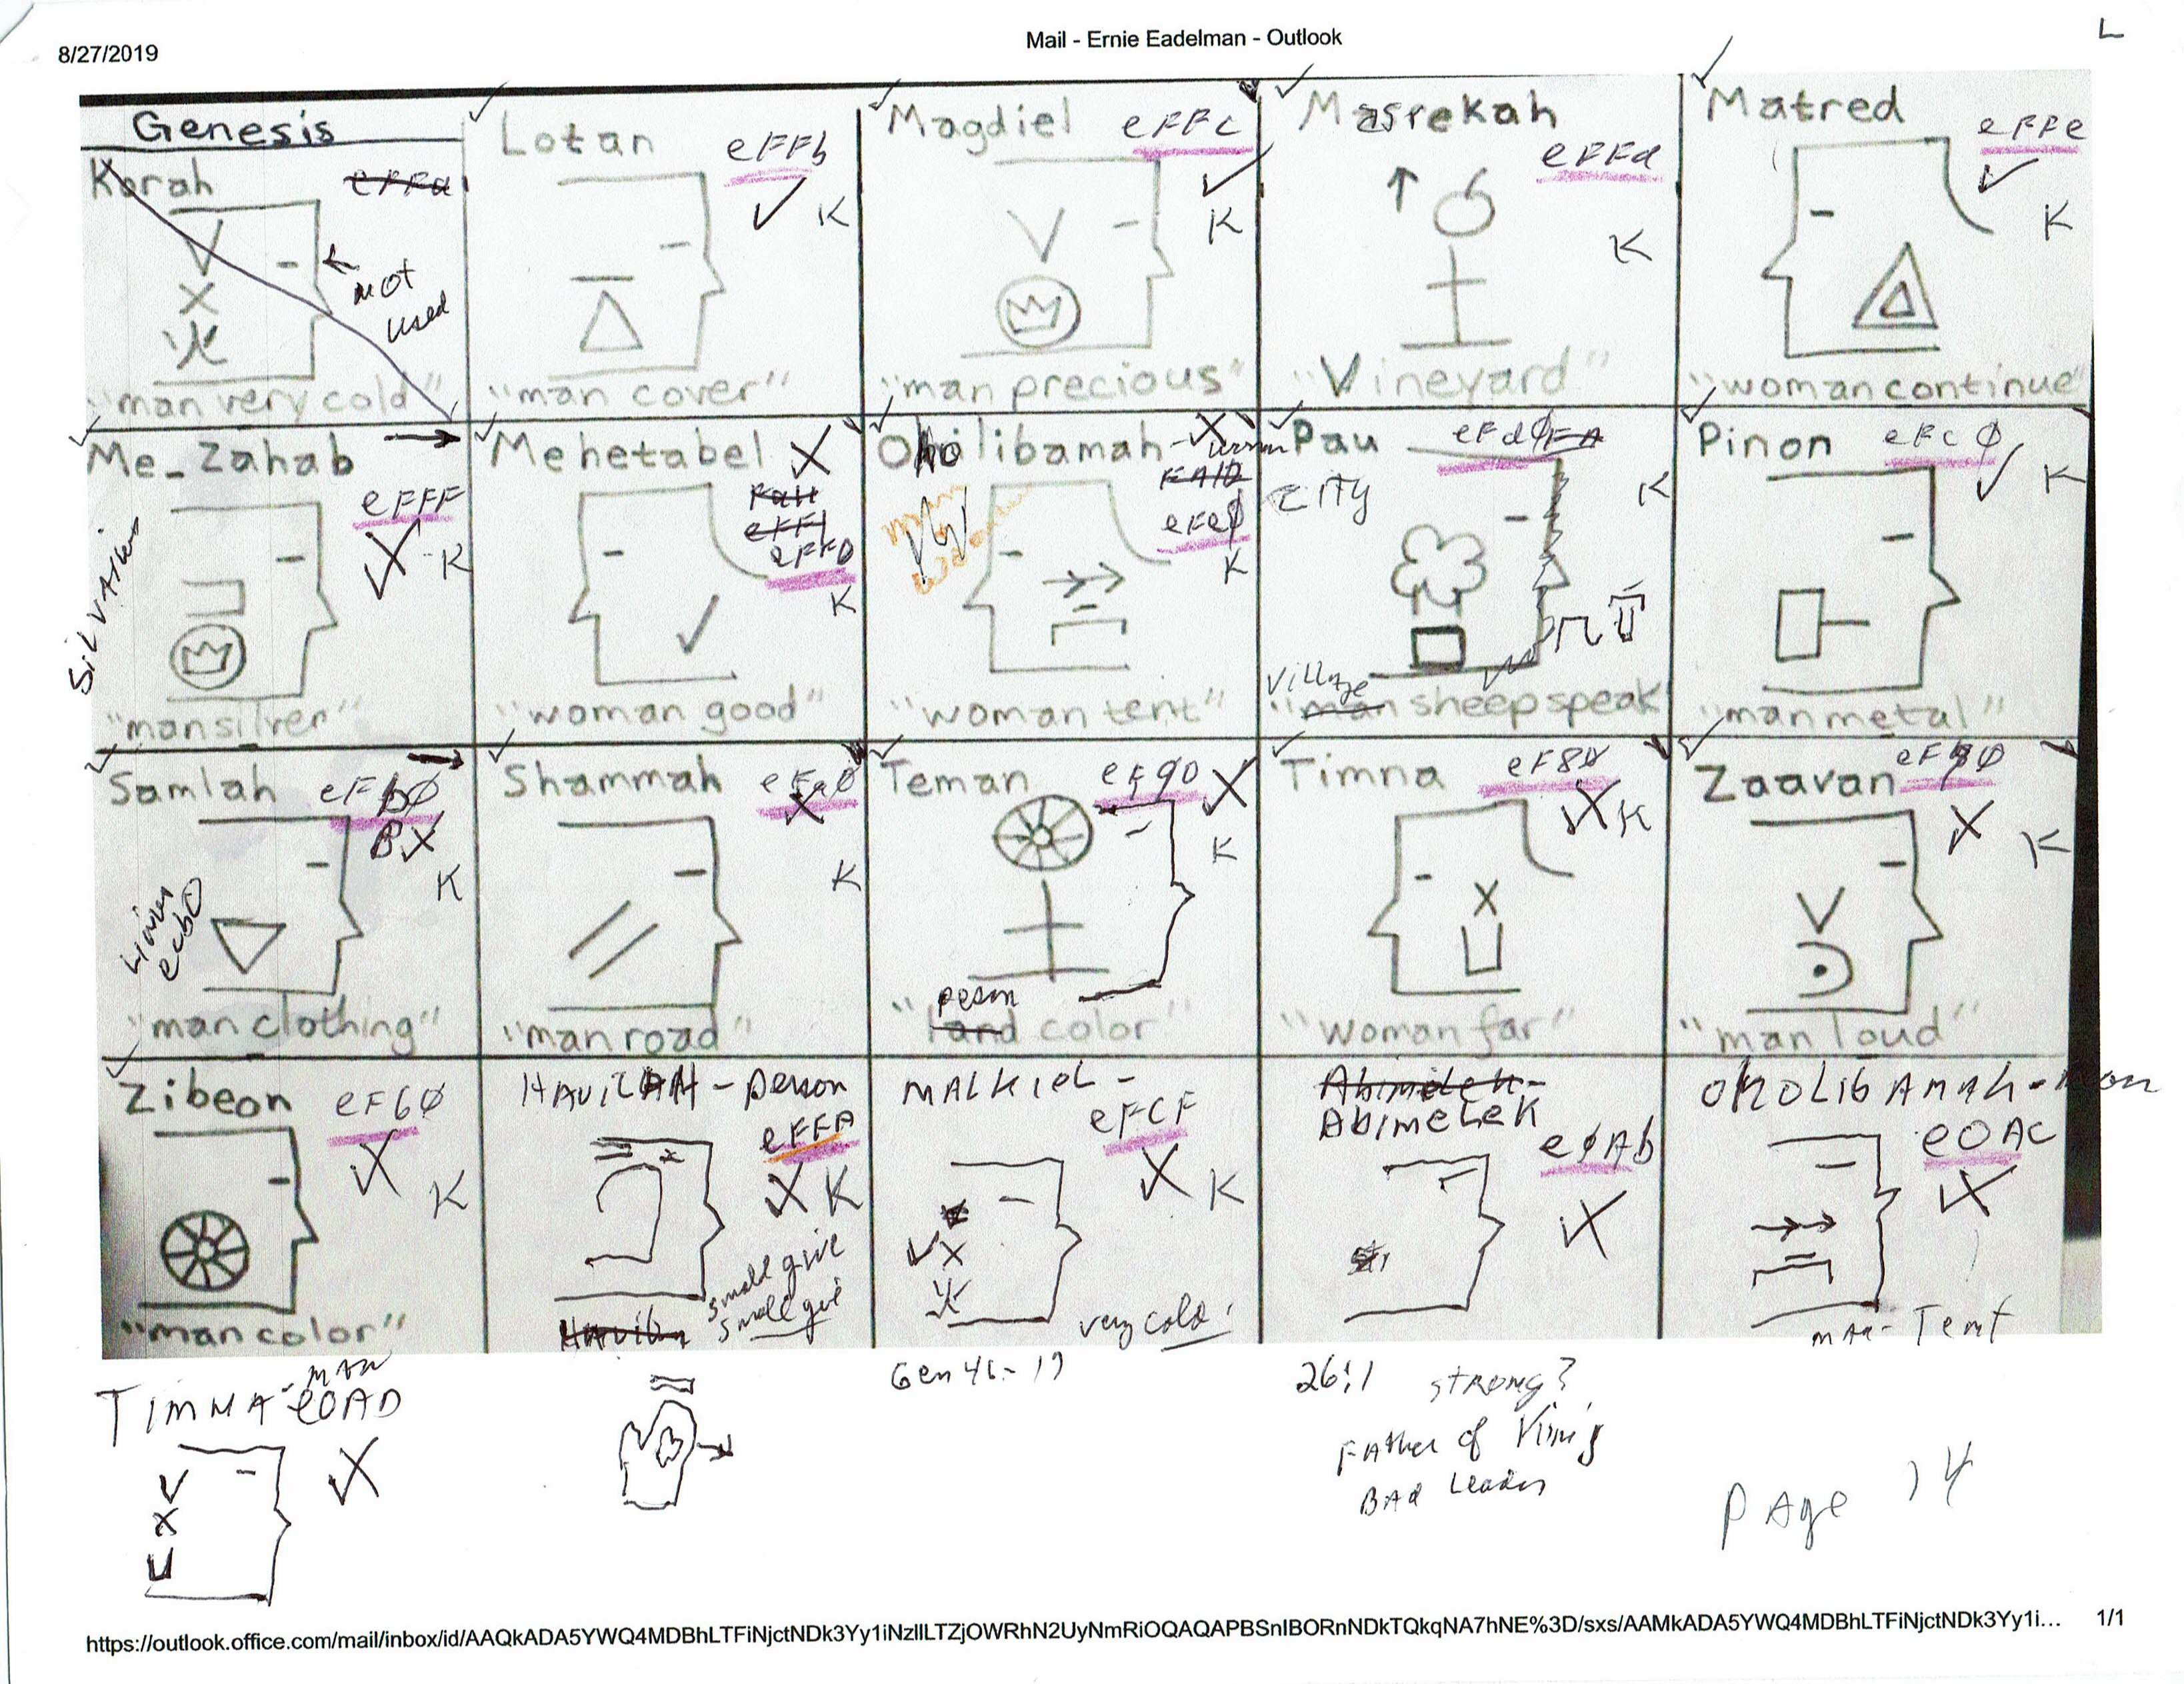 8/27/2019
Mail - Ernie Eadelman - Outlook
L
Genesis
Korah
eFFa
NOT
Used
"man very cold"
Lotan
eFFb
K
"man cover"
Magdiel
eFFc
K
"man precious"
Masrekah
eFFd
K
"Vineyard"
Matred
eFFe
K
"woman continue"
Me_Zahab
eFFF
K
"man silver"
Mehetabel
eFF1
eFF0
K
"woman good"
Oholibamah - woman
eFe0
K
"woman tent"
Pau
eFdØ
City
K
Village
"man sheep speak"
Pinon
eFcØ
K
"man metal"
Samlah
eFbØ
B
K
"man clothing"
Shammah
eFaØ
K
"man road"
Teman
eF90
K
person
"land color"
Timna
eF8Ø
K
"woman far"
Zaavan
K
"man loud"
Zibeon
eF6Ø
K
"man color"
HAVILAH - person
eFFA
K
small give
small give
MALKIEL -
eFCF
K
very cold
Gen 46:17
Abimelek -
AbimeLeK
eØAb
26:1 strong?
FATher of King
BAd Leader
OHOLIbAMAH - man
eOAC
MAN - Tent
TIMNA - MAN
eOAD
PAge 14
https://outlook.office.com/mail/inbox/id/AAQkADA5YWQ4MDBhLTFiNjctNDk3Yy1iNzllLTZjOWRhN2UyNmRiOQAQAPBSnIBORnNDkTQkqNA7hNE%3D/sxs/AAMkADA5YWQ4MDBhLTFiNjctNDk3Yy1i...
1/1